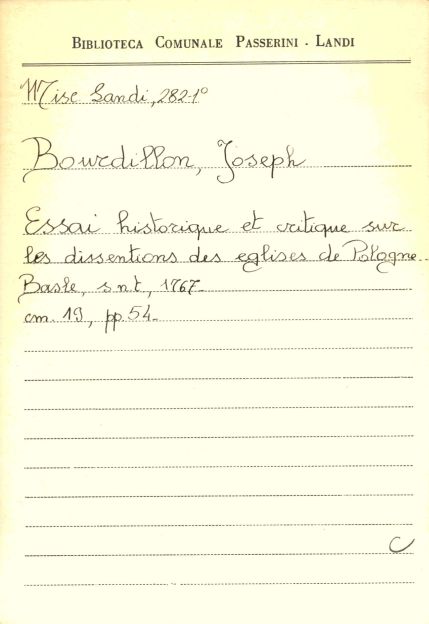 BIBLIOTECA COMUNALE PASSERINI - LANDI
Misc Landi, 282-1°
Bourdillon, Joseph
Essai historique et critique sur
les dissentions des eglises de Pologne-
Basle, s.n.t, 1767-
cm. 19, pp. 54-
C